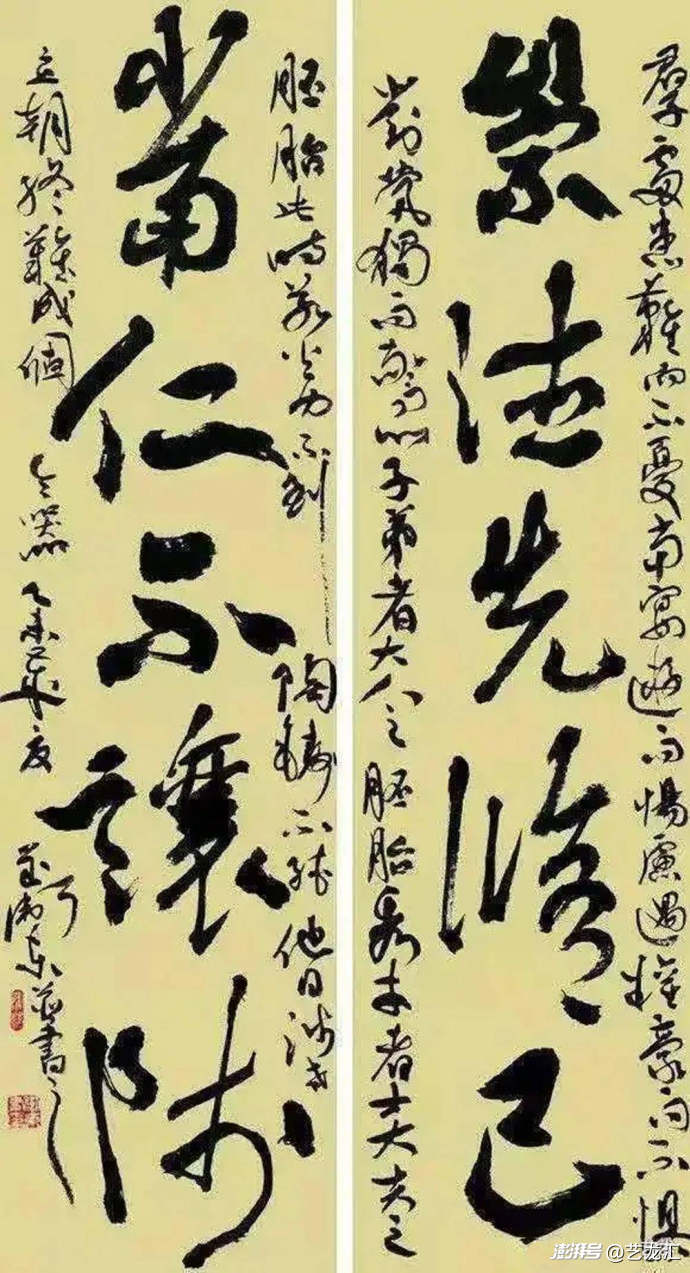 君子處患難而不憂當宴遊而惕慮遇權豪而不懼
累德先脩己
對惸獨而驚心子弟者大人之胚胎秀才者士大夫之
胚胎此時若火力不到陶鑄不純他日涉世
當仁不讓師
立朝終難成個令器乙未 書之
澎湃号@艺茏汇